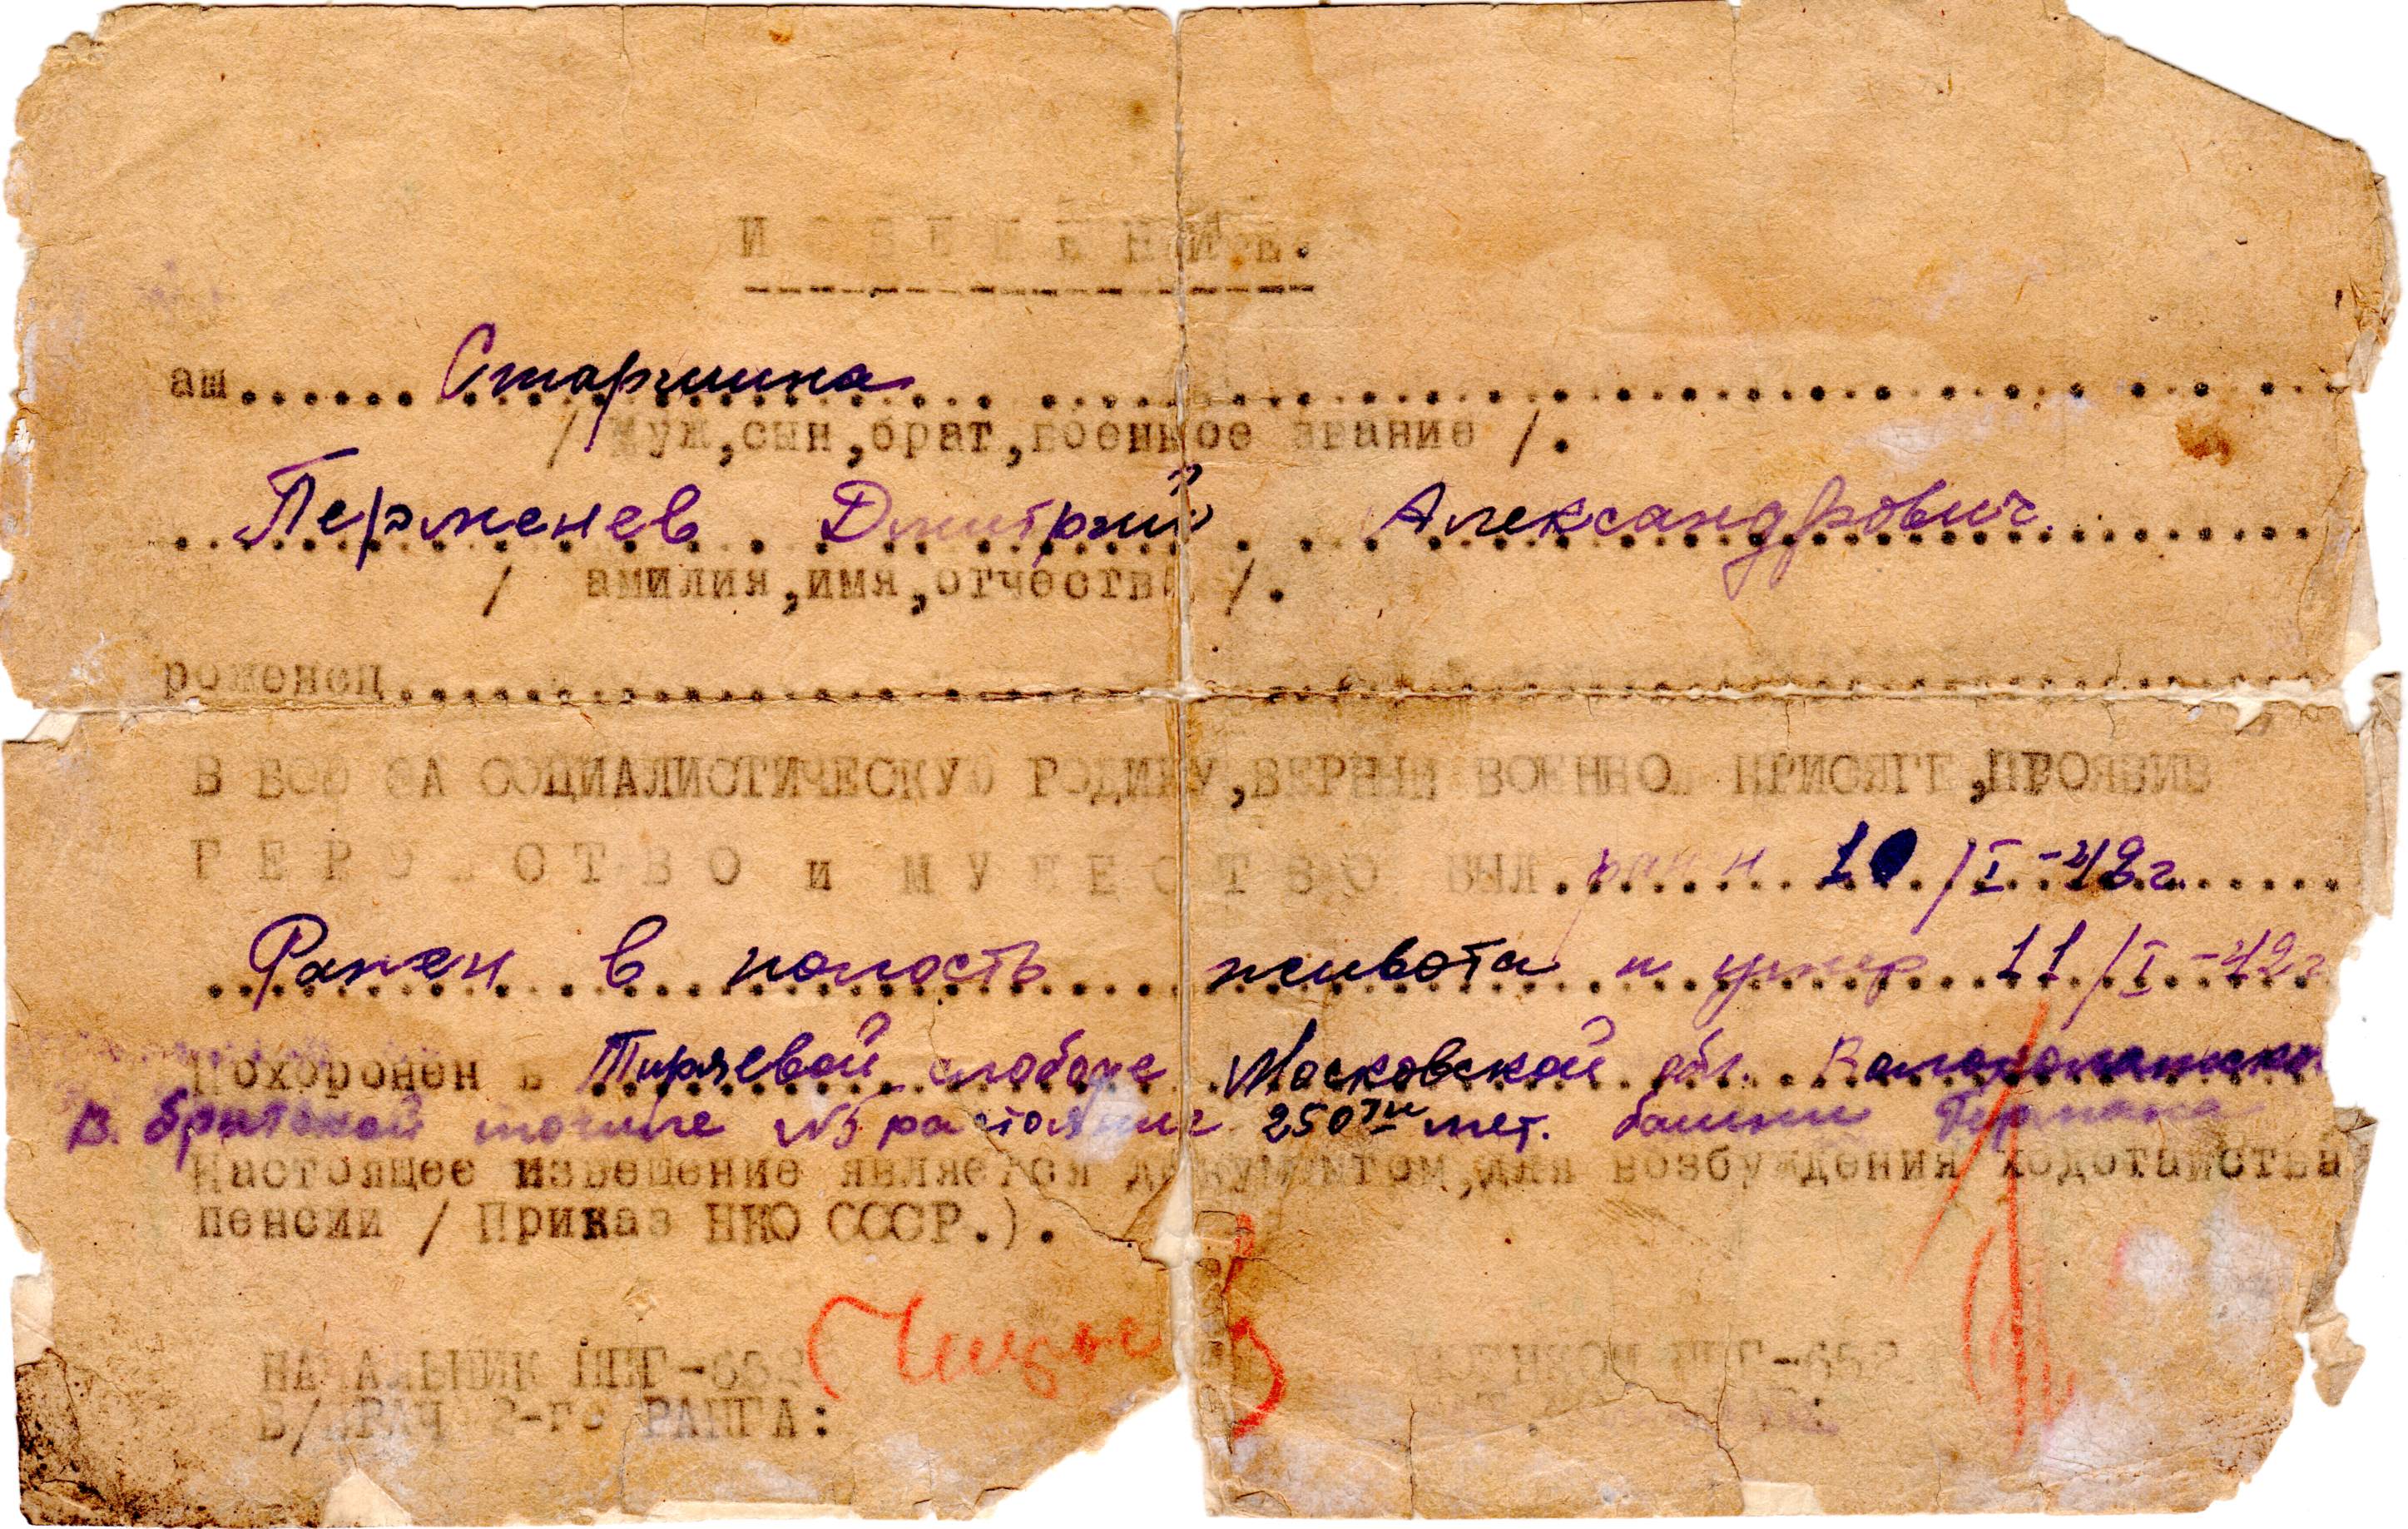 ИЗВЕЩЕНИЕ.
аш...... Старшина
/ муж,сын,брат,военное звание /.
Перменев Дмитрий Александрович
/ амилия,имя,отчество /.
роженец
В БОЮ ЗА СОЦИАЛИСТИЧЕСКУЮ РОДИНУ,ВЕРНЫЙ ВОЕННОЙ ПРИСЯГЕ,ПРОЯВИВ
ГЕРОЙСТВО и МУЖЕСТВО БЫЛ ранен 10/I-42г.
Ранен в полость живота и умер 11/I-42г
Похоронен в Тиряевой слободе Московской обл. Волоколамског
В братской могиле расстояние 250ти мет. башни Германа
Настоящее извещение является документом,для возбуждения ходотайства
пенсии / Приказ НКО СССР.).
НАЧАЛЬНИК ППГ-
ВОЕНКОМ ППГ-
В/ВРАЧ 2-го РАНГА: